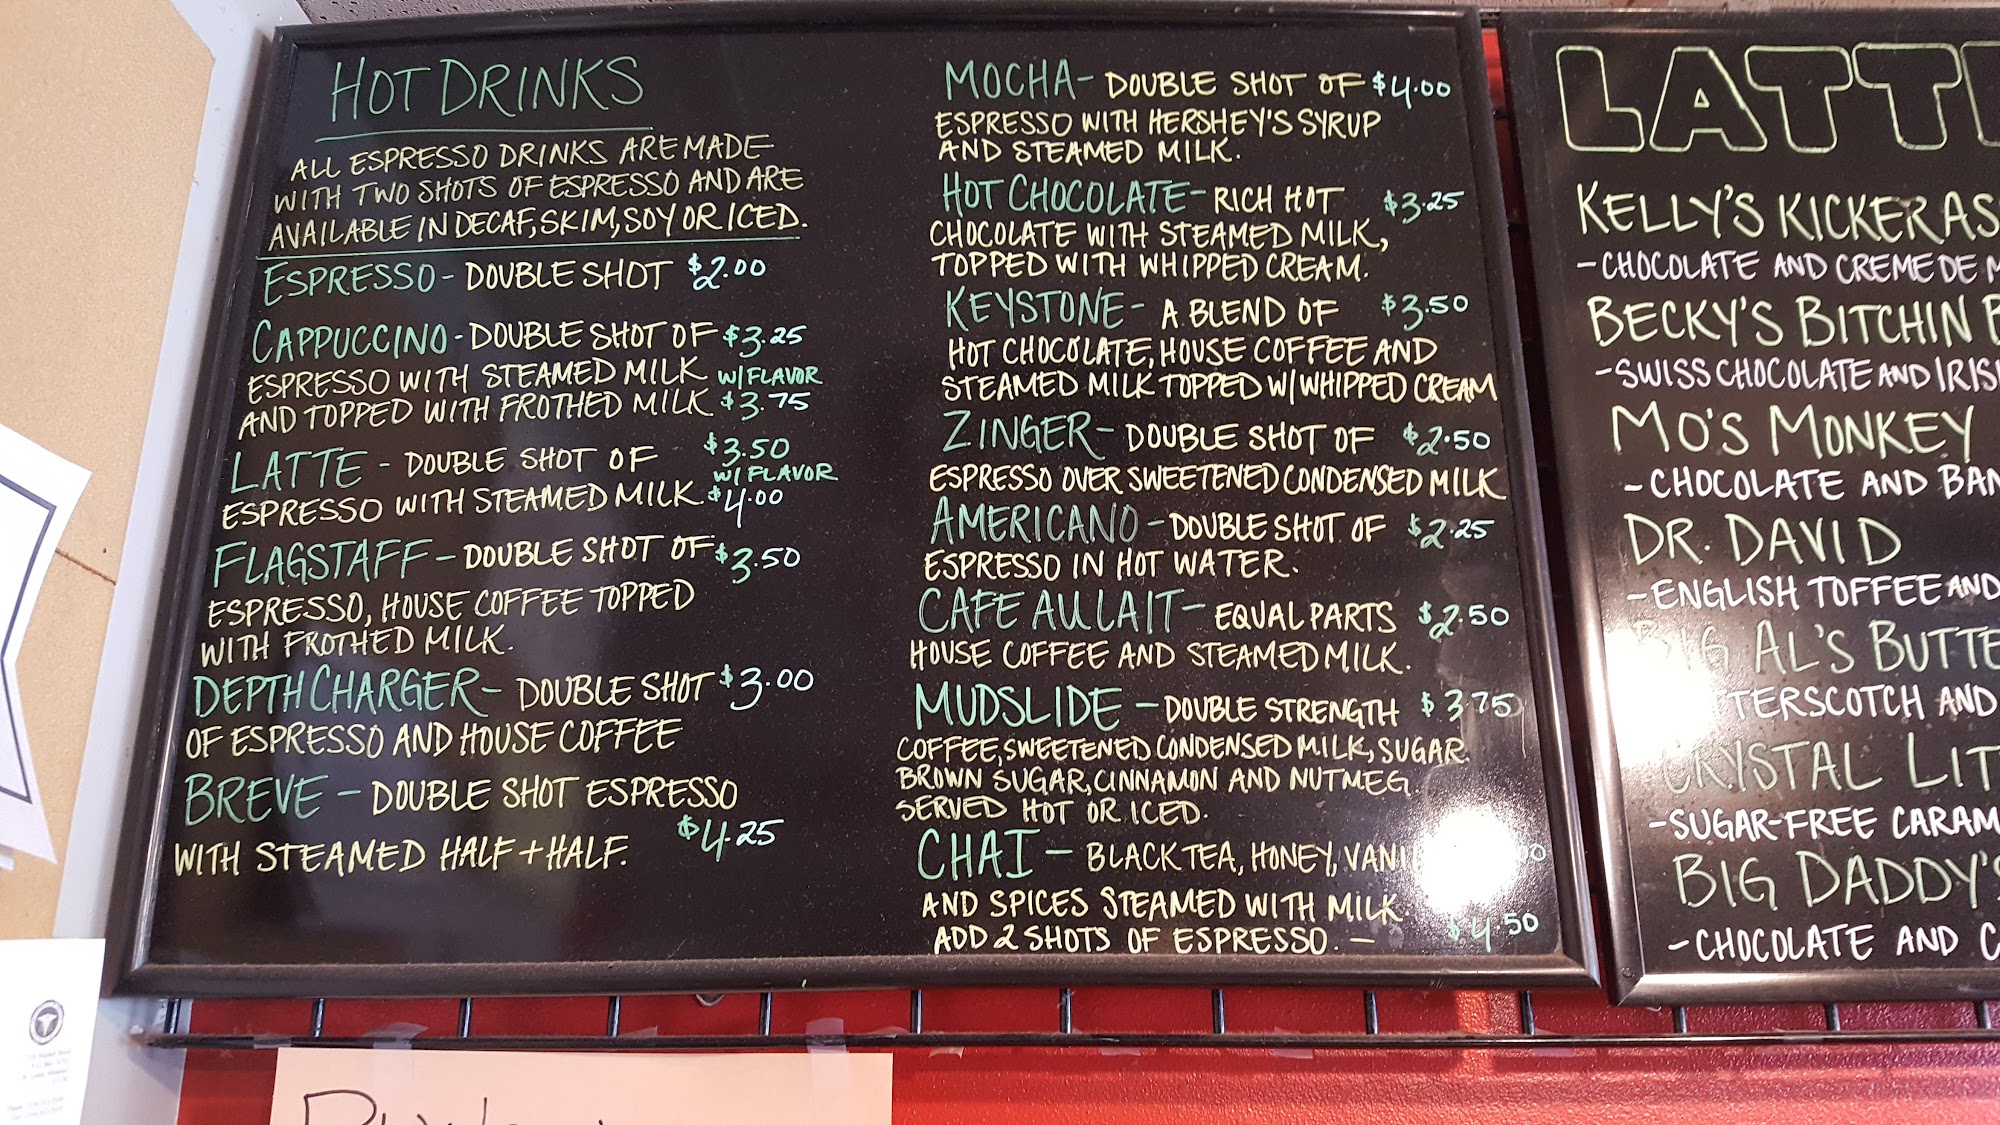 HOT DRINKS
ALL ESPRESSO DRINKS ARE MADE
WITH TWO SHOTS OF ESPRESSO AND ARE
AVAILABLE IN DECAF, SKIM, SOY OR ICED.
ESPRESSO - DOUBLE SHOT $2.00
CAPPUCCINO - DOUBLE SHOT OF $3.25
ESPRESSO WITH STEAMED MILK W/FLAVOR
AND TOPPED WITH FROTHED MILK $3.75
LATTE - DOUBLE SHOT OF $3.50
W/FLAVOR
ESPRESSO WITH STEAMED MILK. $4.00
FLAGSTAFF - DOUBLE SHOT OF $3.50
ESPRESSO, HOUSE COFFEE TOPPED
WITH FROTHED MILK.
DEPTH CHARGER - DOUBLE SHOT $3.00
OF ESPRESSO AND HOUSE COFFEE
BREVE - DOUBLE SHOT ESPRESSO
WITH STEAMED HALF + HALF. $4.25
MOCHA - DOUBLE SHOT OF $4.00
ESPRESSO WITH HERSHEY'S SYRUP
AND STEAMED MILK.
HOT CHOCOLATE - RICH HOT $3.25
CHOCOLATE WITH STEAMED MILK,
TOPPED WITH WHIPPED CREAM.
KEYSTONE - A BLEND OF $3.50
HOT CHOCOLATE, HOUSE COFFEE AND
STEAMED MILK TOPPED W/WHIPPED CREAM
ZINGER - DOUBLE SHOT OF $2.50
ESPRESSO OVER SWEETENED CONDENSED MILK
AMERICANO - DOUBLE SHOT OF $2.25
ESPRESSO IN HOT WATER.
CAFE AU LAIT - EQUAL PARTS $2.50
HOUSE COFFEE AND STEAMED MILK.
MUDSLIDE - DOUBLE STRENGTH $3.75
COFFEE, SWEETENED CONDENSED MILK, SUGAR
BROWN SUGAR, CINNAMON AND NUTMEG.
SERVED HOT OR ICED.
CHAI - BLACK TEA, HONEY,
AND SPICES STEAMED WITH MILK
ADD 2 SHOTS OF ESPRESSO. - $4.50
LATT
KELLY'S KICKER
- CHOCOLATE AND CREME DE
BECKY'S BITCHIN
- SWISS CHOCOLATE AND
MO'S MONKEY
- CHOCOLATE AND
DR. DAVID
- ENGLISH TOFFEE AND
BIG AL'S
AND
CRYSTAL
- SUGAR-FREE
BIG DADDY'S
- CHOCOLATE AND